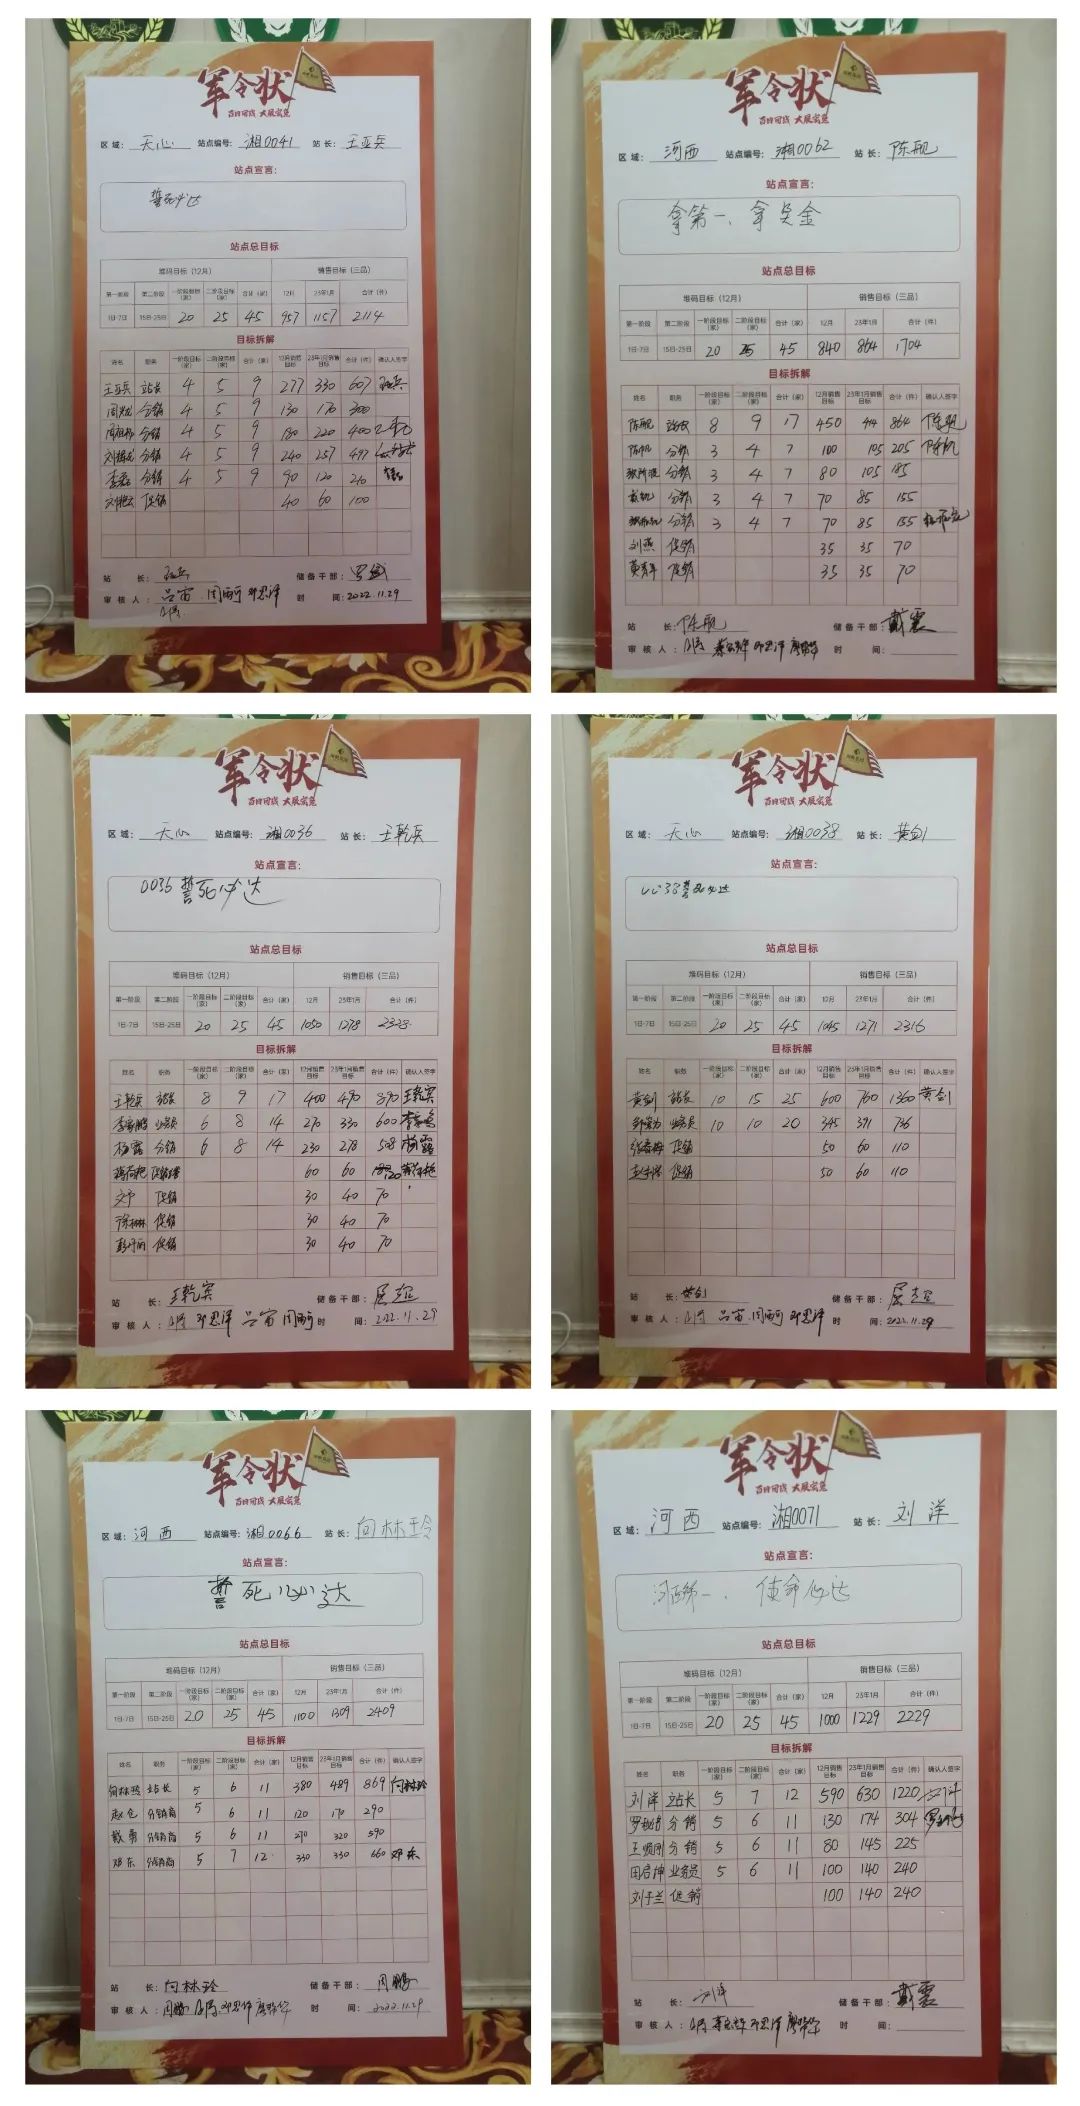 军令状
百日回战 大展宏兔
区域: 天心 站点编号: 湘0041 站长: 王亚兵
站点宣言:
誓死必达
站点总目标
堆码目标（12月） 销售目标（三品）
第一阶段 第二阶段 一阶段目标（家） 二阶段目标（家） 合计（家） 12月 23年1月 合计（件）
1日-7日 15日-25日 20 25 45 957 1157 2114
目标拆解
姓名 职务 一阶段目标（家） 二阶段目标（家） 合计（家） 12月销售目标 23年1月销售目标 合计（件） 确认人签字
王亚兵 站长 4 5 9 277 330 607
分销 4 5 9 130 170 300
分销 4 5 9 180 220 400
分销 4 5 9 240 257 497
分销 4 5 9 90 120 210
促销 40 60 100
站长: 储备干部:
审核人: 吕宙 邓思泽 时间: 2022.11.29
军令状
百日回战 大展宏兔
区域: 河西 站点编号: 湘0062 站长: 陈舰
站点宣言:
拿第一、拿奖金
站点总目标
堆码目标（12月） 销售目标（三品）
第一阶段 第二阶段 一阶段目标（家） 二阶段目标（家） 合计（家） 12月 23年1月 合计（件）
1日-7日 15日-25日 20 25 45 840 864 1704
目标拆解
姓名 职务 一阶段目标（家） 二阶段目标（家） 合计（家） 12月销售目标 23年1月销售目标 合计（件） 确认人签字
陈舰 站长 8 9 17 450 414 864 陈舰
陈帆 分销 3 4 7 100 105 205 陈帆
分销 3 4 7 80 105 185
分销 3 4 7 70 85 155
分销 3 4 7 70 85 155
刘燕 促销 35 35 70
黄青年 促销 35 35 70
站长: 陈舰 储备干部: 戴震
审核人: 邓思泽 时间:
军令状
百日回战 大展宏兔
区域: 天心 站点编号: 湘0036 站长: 王乾兵
站点宣言:
0036誓死必达
站点总目标
堆码目标（12月） 销售目标（三品）
第一阶段 第二阶段 一阶段目标（家） 二阶段目标（家） 合计（家） 12月 23年1月 合计（件）
1日-7日 15日-25日 20 25 45 1050 1278 2328
目标拆解
姓名 职务 一阶段目标（家） 二阶段目标（家） 合计（家） 12月销售目标 23年1月销售目标 合计（件） 确认人签字
王乾兵 站长 8 9 17 400 490 890
李家鹏 业务员 6 8 14 270 330 600
杨露 分销 6 8 14 230 278 508 杨露
60 60 120
文予 促销 30 40 70
促销 30 40 70
彭丹丽 促销 30 40 70
站长: 储备干部:
审核人: 邓思泽 吕宙 时间: 2022.11.29
军令状
百日回战 大展宏兔
区域: 天心 站点编号: 湘0038 站长: 黄剑
站点宣言:
0038誓死必达
站点总目标
堆码目标（12月） 销售目标（三品）
第一阶段 第二阶段 一阶段目标（家） 二阶段目标（家） 合计（家） 12月 23年1月 合计（件）
1日-7日 15日-25日 20 25 45 1045 1271 2316
目标拆解
姓名 职务 一阶段目标（家） 二阶段目标（家） 合计（家） 12月销售目标 23年1月销售目标 合计（件） 确认人签字
黄剑 站长 10 15 25 600 760 1360 黄剑
业务员 10 10 20 345 391 736
促销 50 60 110
促销 50 60 110
站长: 黄剑 储备干部:
审核人: 吕宙 邓思泽 时间: 2022.11.29
军令状
百日回战 大展宏兔
区域: 河西 站点编号: 湘0066 站长: 向林玲
站点宣言:
誓死必达
站点总目标
堆码目标（12月） 销售目标（三品）
第一阶段 第二阶段 一阶段目标（家） 二阶段目标（家） 合计（家） 12月 23年1月 合计（件）
1日-7日 15日-25日 20 25 45 1100 1309 2409
目标拆解
姓名 职务 一阶段目标（家） 二阶段目标（家） 合计（家） 12月销售目标 23年1月销售目标 合计（件） 确认人签字
向林玲 站长 5 6 11 380 489 869 向林玲
赵仓 分销商 5 6 11 120 170 290
戴勇 分销商 5 6 11 270 320 590
邓东 分销商 5 7 12 330 330 660 邓东
站长: 向林玲 储备干部: 周鹏
审核人: 周鹏 邓思泽 时间: 2022.11.29
军令状
百日回战 大展宏兔
区域: 河西 站点编号: 湘0071 站长: 刘洋
站点宣言:
河西第一、使命必达
站点总目标
堆码目标（12月） 销售目标（三品）
第一阶段 第二阶段 一阶段目标（家） 二阶段目标（家） 合计（家） 12月 23年1月 合计（件）
1日-7日 15日-25日 20 25 45 1000 1229 2229
目标拆解
姓名 职务 一阶段目标（家） 二阶段目标（家） 合计（家） 12月销售目标 23年1月销售目标 合计（件） 确认人签字
刘洋 站长 5 7 12 590 630 1220
分销 5 6 11 130 174 304
王顺刚 分销 5 6 11 80 145 225
田启坤 业务员 5 6 11 100 140 240
刘子兰 促销 100 140 240
站长: 刘洋 储备干部: 戴震
审核人: 邓思泽 时间: